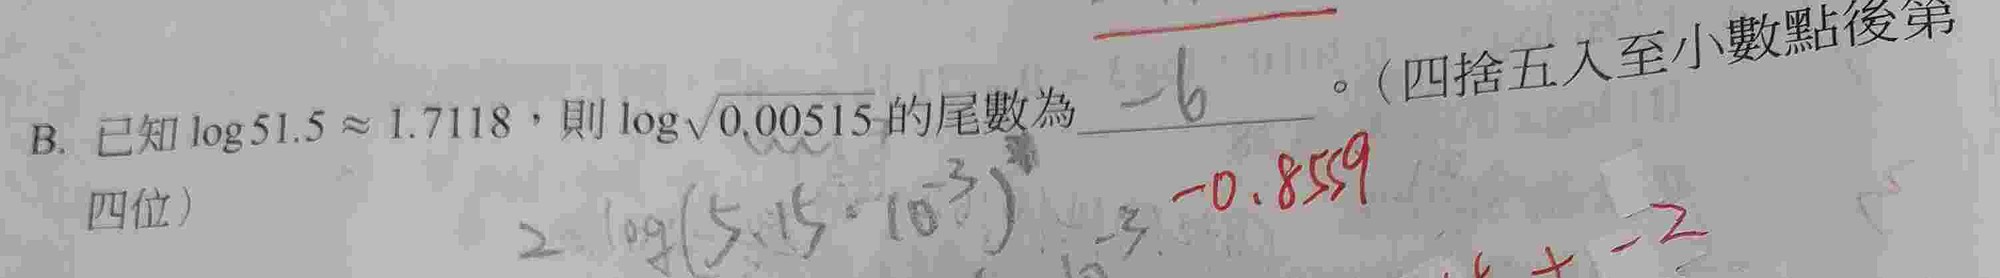 B. 已知 log 51.5 ≈ 1.7118，則 log√0.00515 的尾數為 -6 。（四捨五入至小數點後第
四位）
-0.8559
2 log(5.15·10^-3)
-3
+ -2